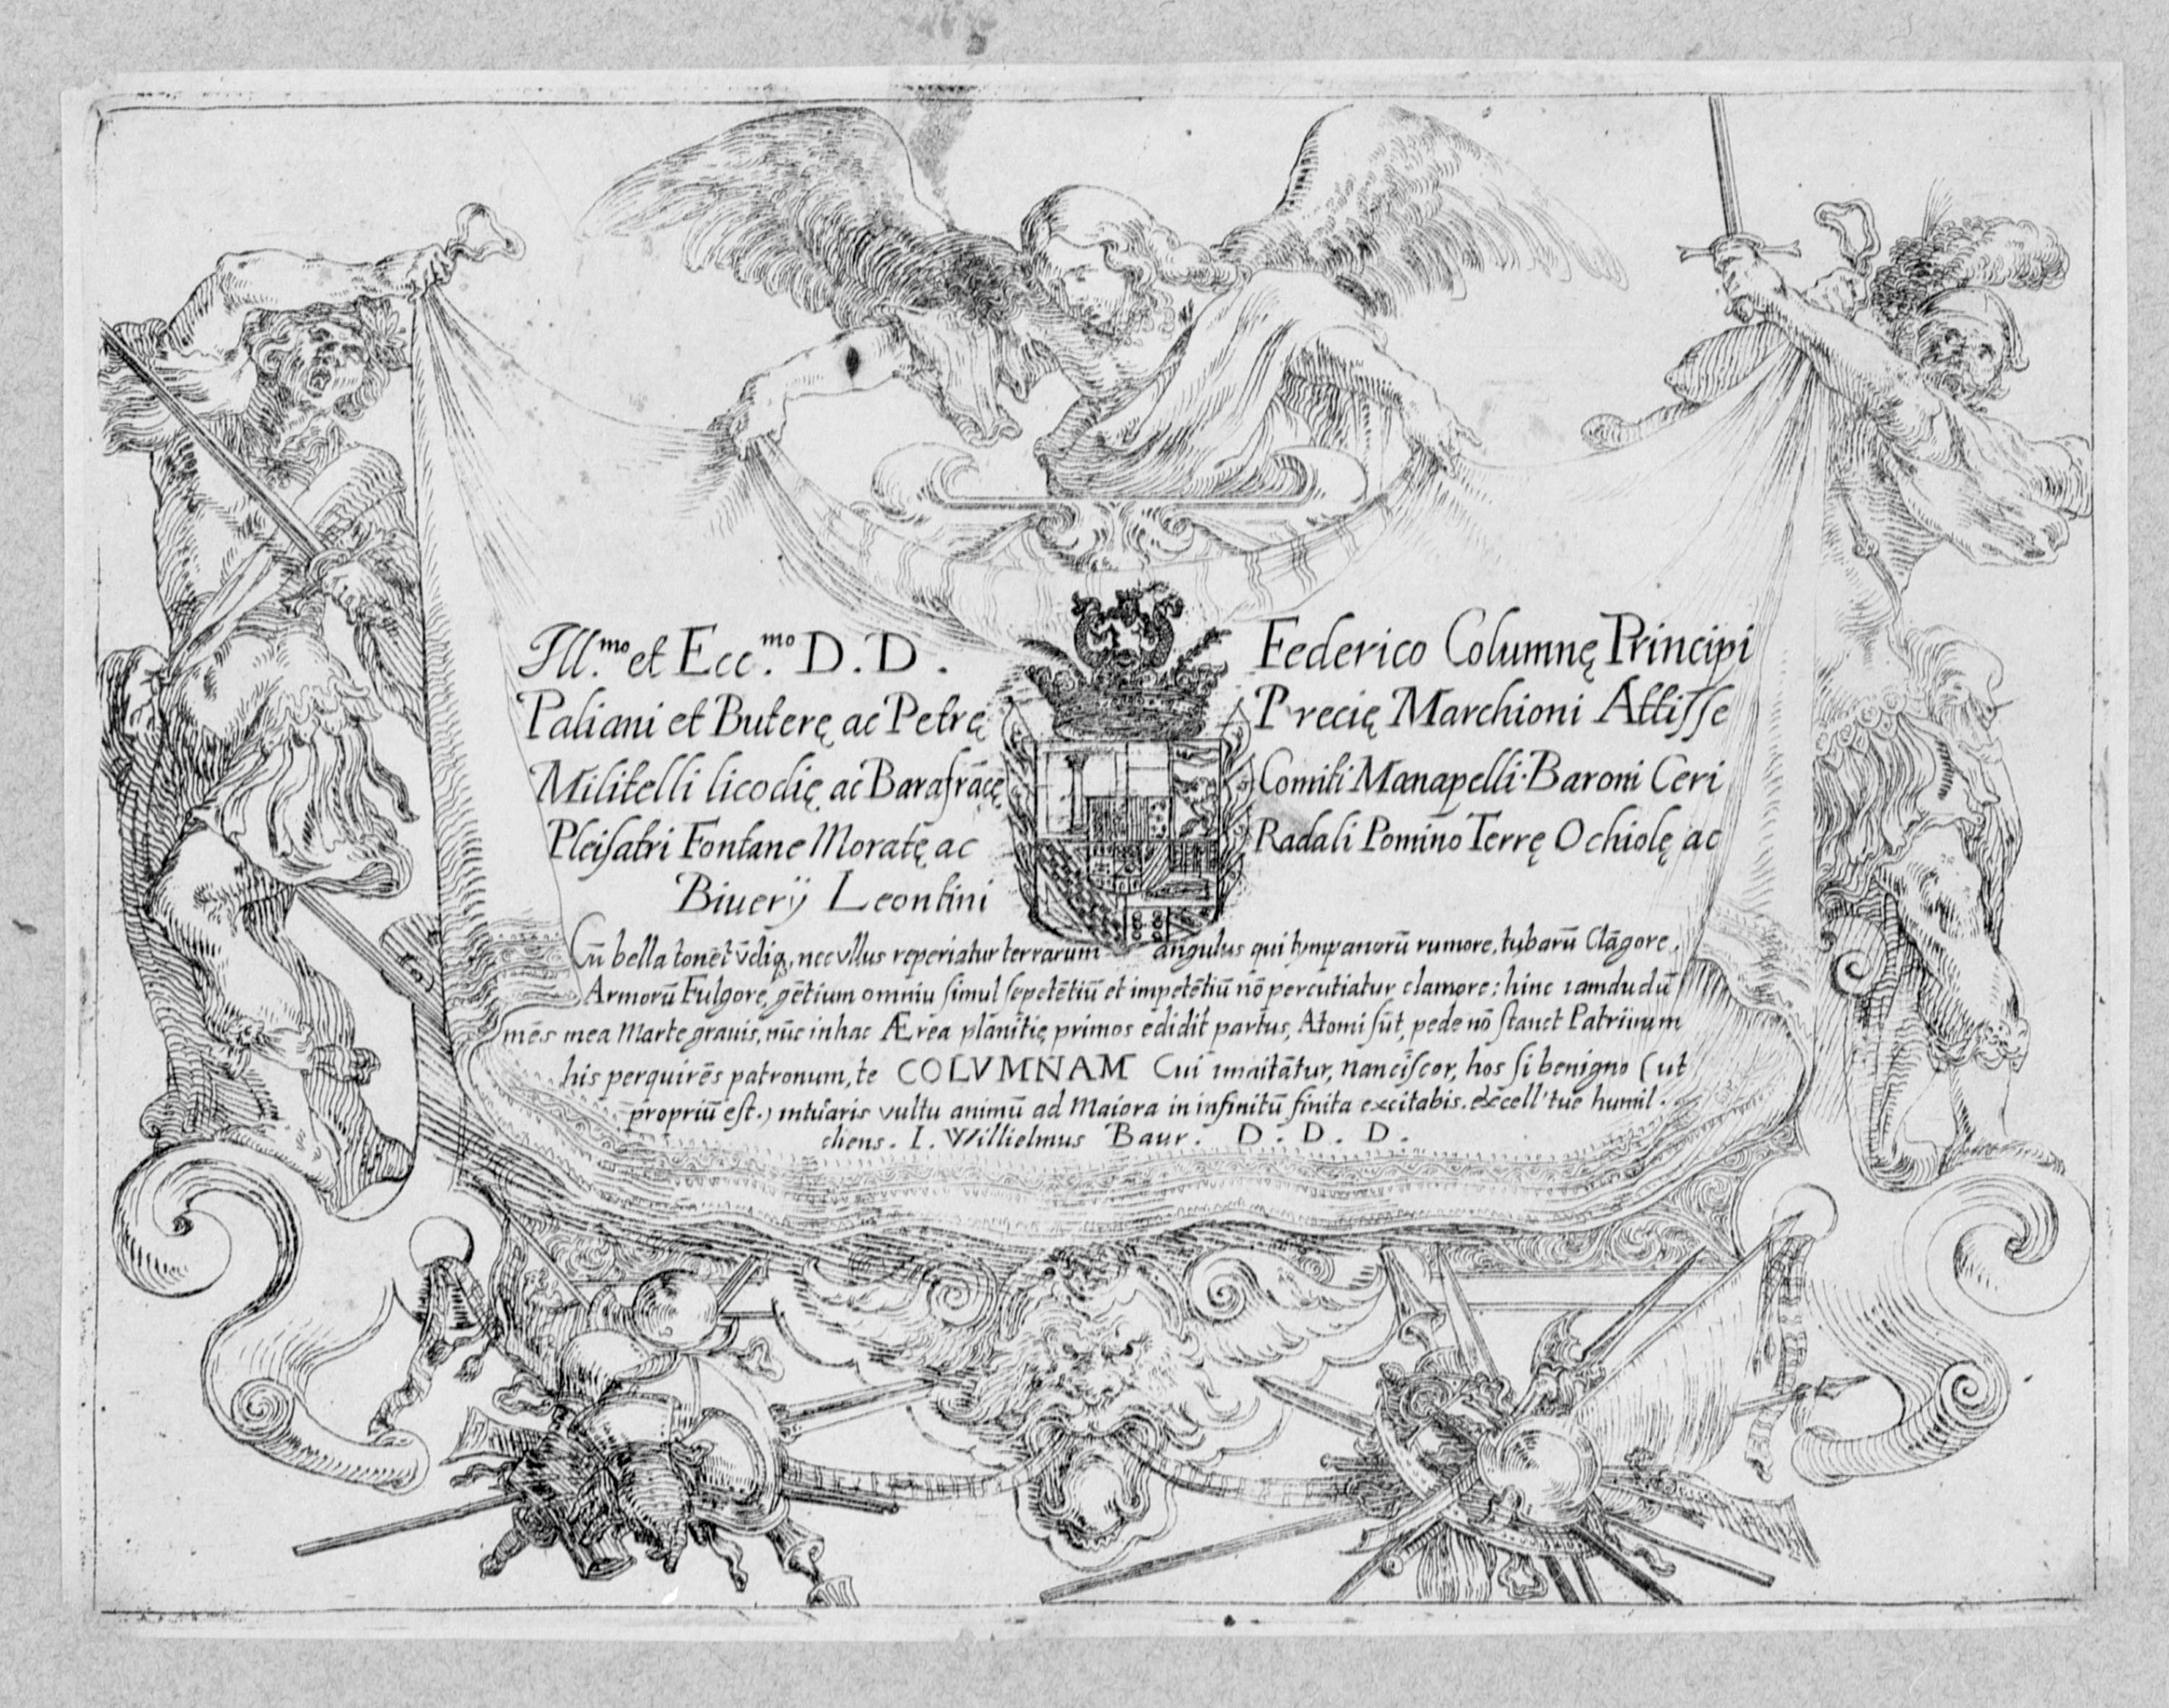 Ill.mo et Ecc.mo D.D. Federico Columnę Principi
Paliani et Buterę ac Petrę Precię Marchioni Attisse
Militelli licodię ac Barafrācę Comiti Manapelli·Baroni Ceri
Pleisatri Fontane Moratę ac Radali Pomino Terrę Ochiolę ac
Biuerij Leontini
Cū bella tonēt vdiq, nec vllus reperiatur terrarum angulus qui tympanorū rumore, tubarū Clāgore,
Armorū Fulgore, gētium omniu simul sepetētiū et impetētiū nō percutiatur clamore: hinc iamdudū
mēs mea Marte grauis, nūc in hac Ærea planitię primos edidit partus, Atomi sūt, pede nō stanct Patriinum
his perquirēs patronum, te COLVMNAM Cui innitātur, nanciscor, hos si benigno (ut
propriū est.) intuaris vultu animū ad Maiora in infinitū finita excitabis. excell' tue humil.
cliens. I. Willielmus Baur. D. D. D.